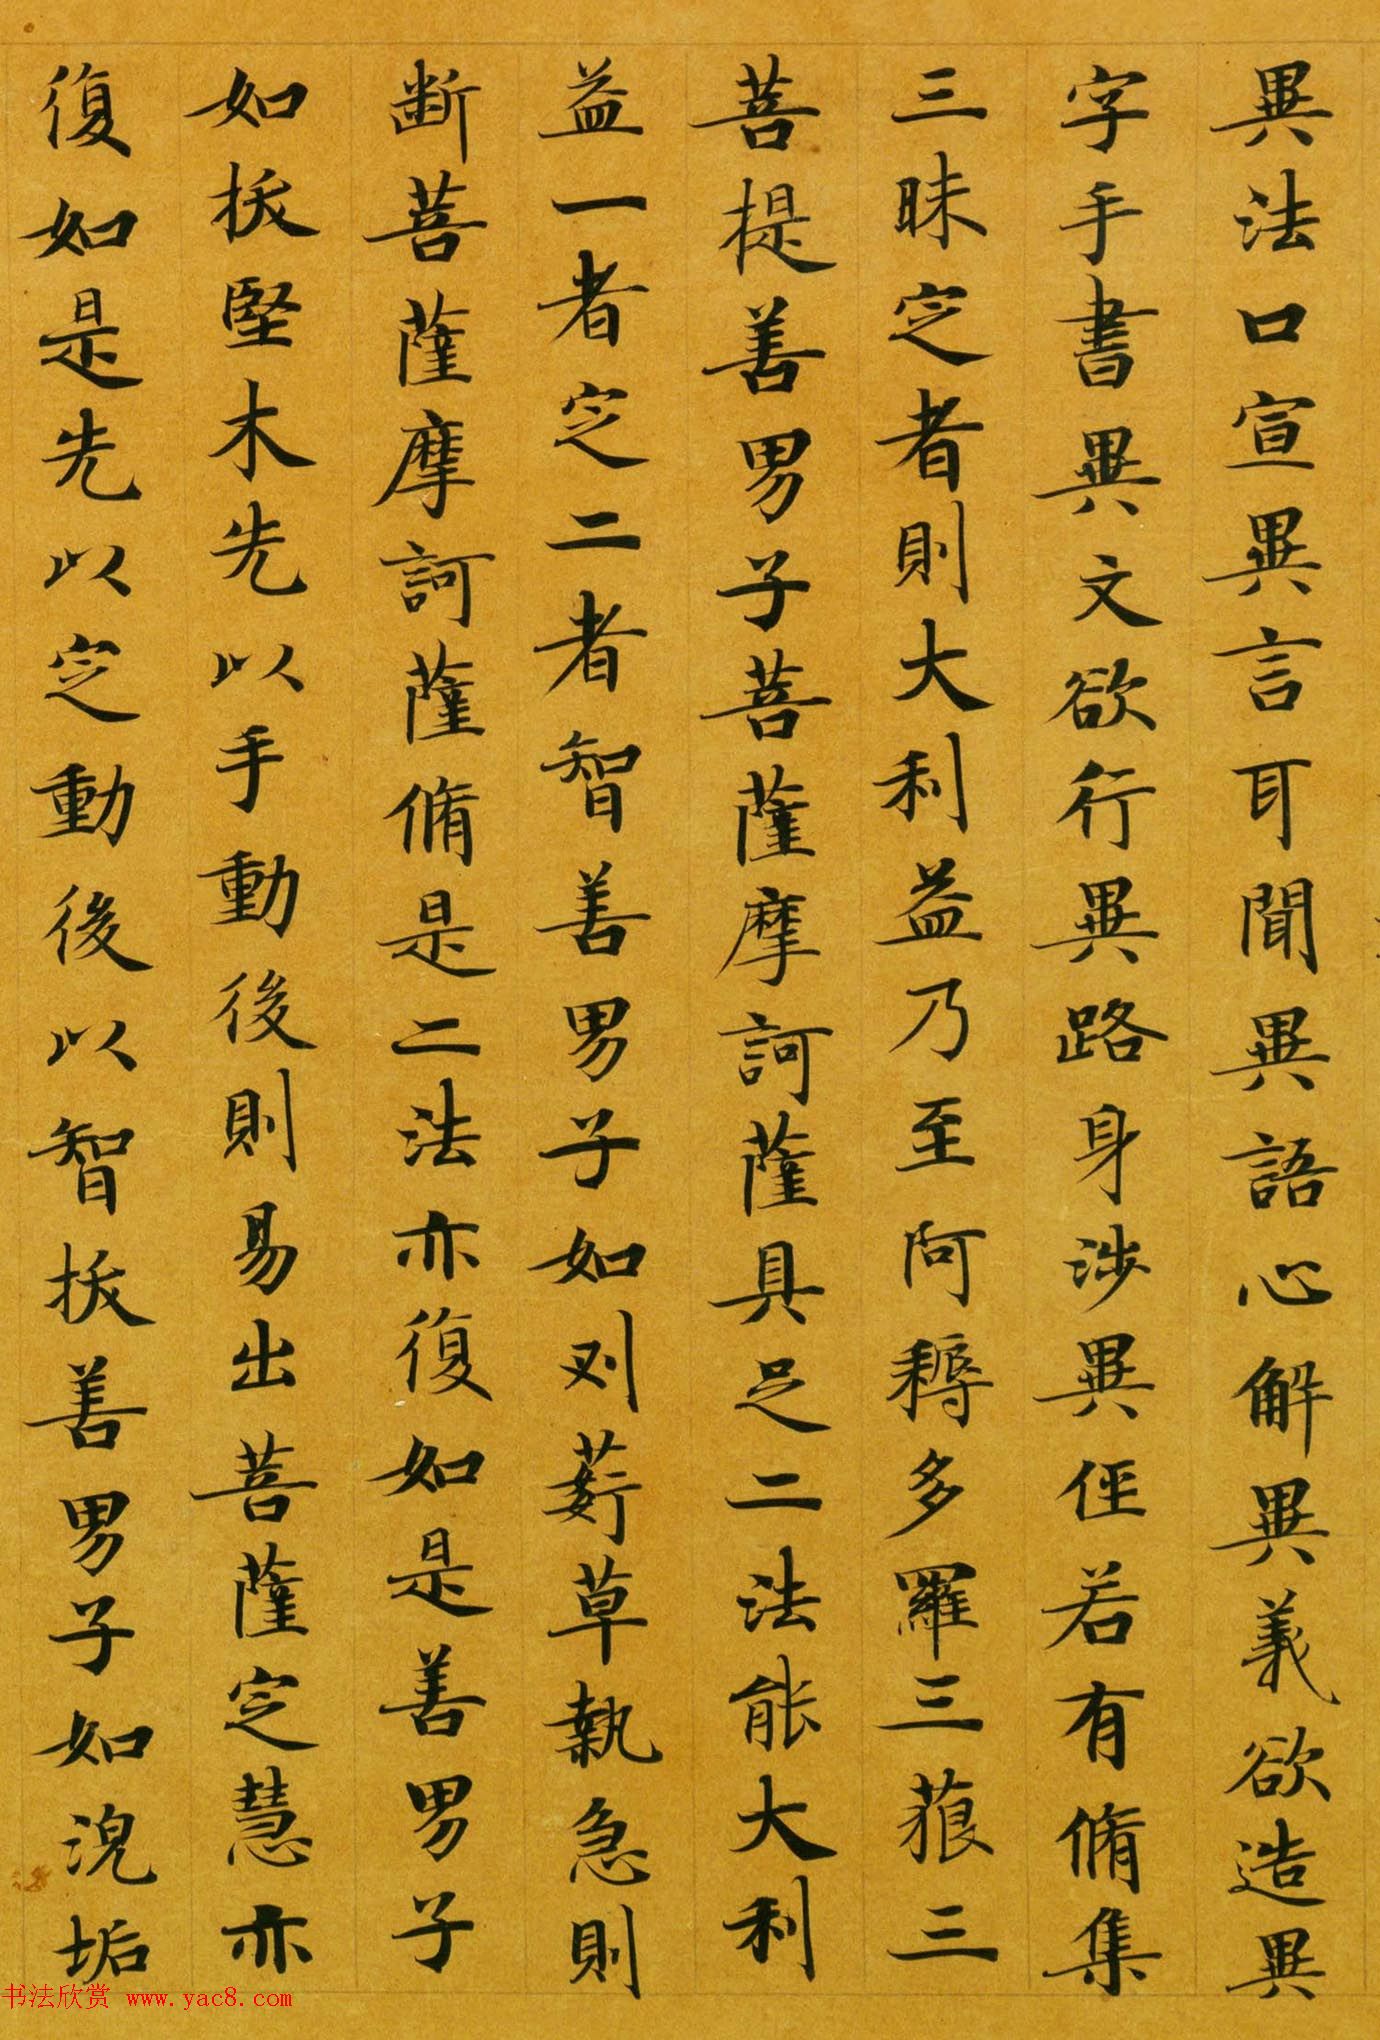 異法口宣異言耳聞異語心解異義欲造異
字手書異文欲行異路身涉異俓若有脩集
三昧定者則大利益乃至阿耨多羅三藐三
菩提善男子菩薩摩訶薩具足二法能大利
益一者定二者智善男子如刈菥草執急則
断菩薩摩訶薩脩是二法亦復如是善男子
如拔堅木先以手動後則易出菩薩定慧亦
復如是先以定動後以智拔善男子如浣垢
书法欣赏 www.yac8.com